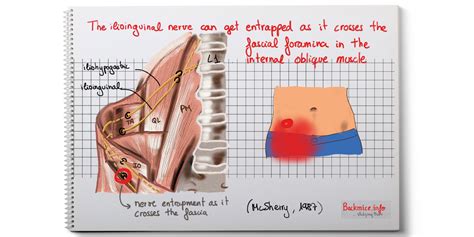 The ilioinguinal nerve can get entrapped as it crosses the
fascial foramina in the
internal oblique muscle
iliohypogastric
ilioinguinal
L1
TA
QL
PM
IO
nerve entrapment as it
crosses the fascia
(McSherry, 1987)
Backmice.info